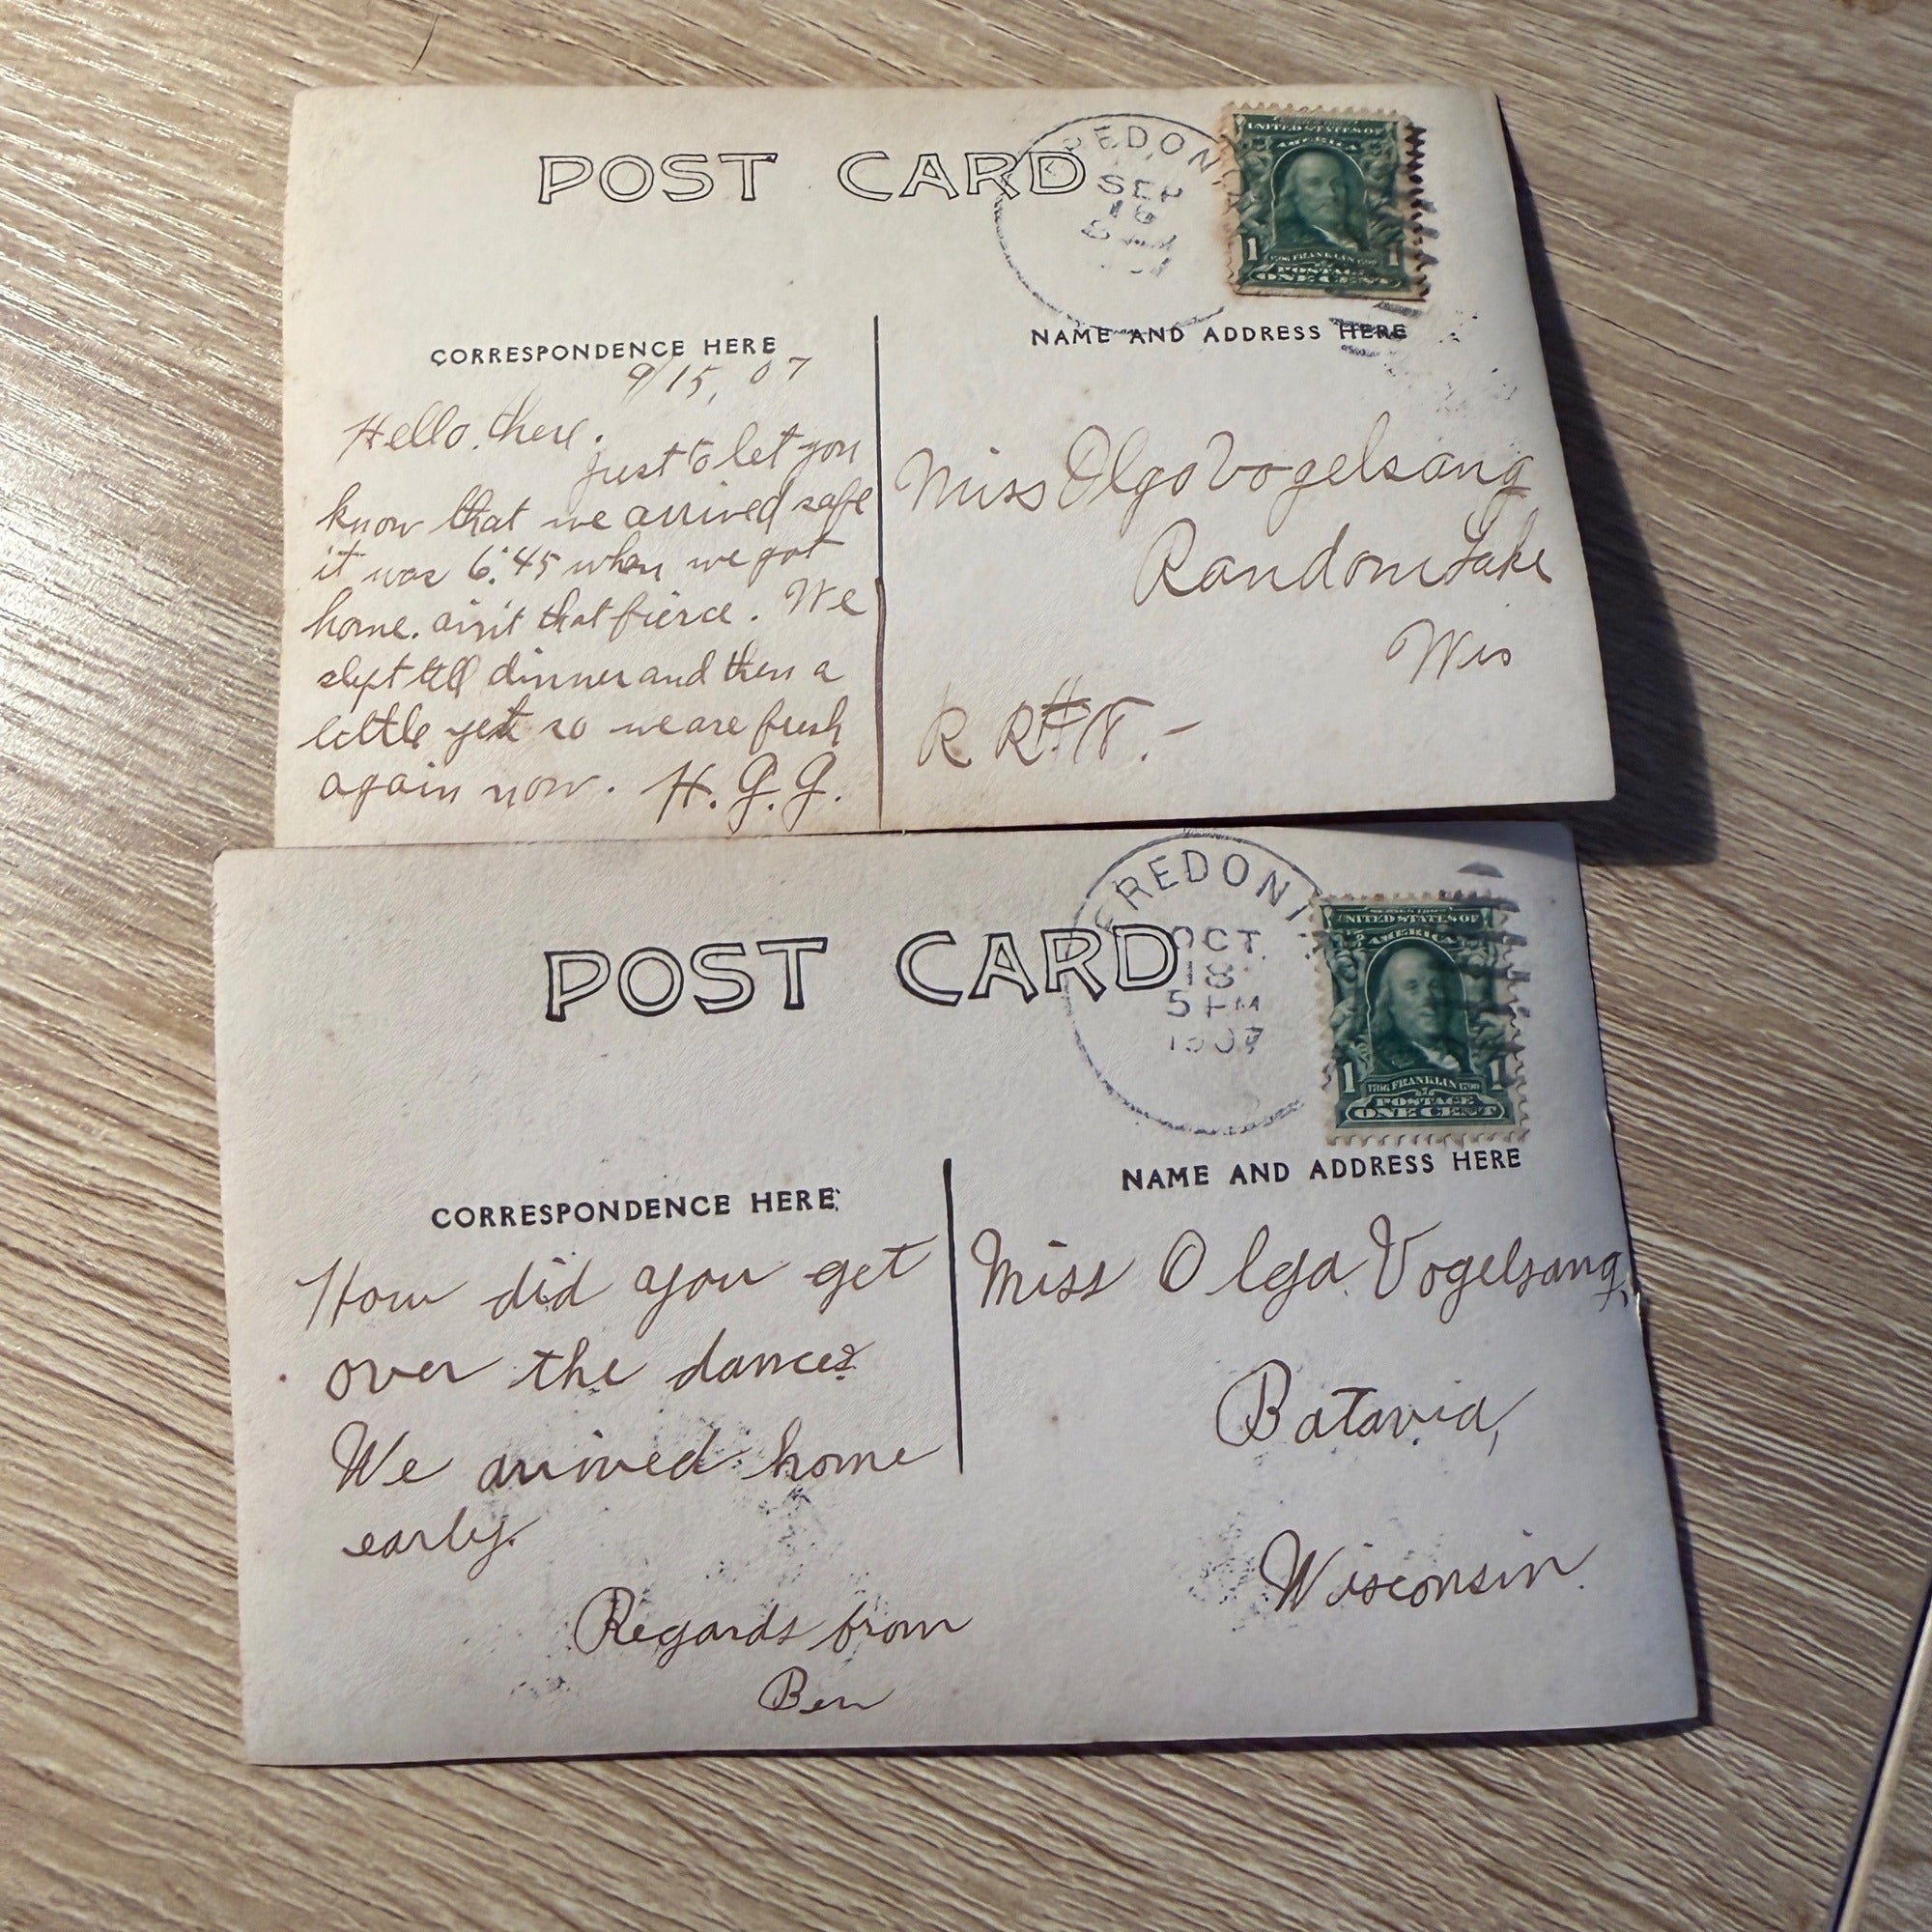 POST CARD
FREDONIA
SEP
16
UNITED STATES OF
AMERICA
1 1
FRANKLIN
POSTAGE
ONE CENT
CORRESPONDENCE HERE
NAME AND ADDRESS HERE
9/15, 07
Hello there.
just to let you
know that we arrived safe
it was 6:45 when we got
home. ain't that fierce. We
slept till dinner and then a
little yet so we are fresh
again now. H. G. G.
Miss Olga Vogelsang
Random Lake
Wis
R R #
POST CARD
FREDONI
OCT.
18
5 PM
1907
UNITED STATES OF
AMERICA
1 1
1706 FRANKLIN 1790
POSTAGE
ONE CENT
CORRESPONDENCE HERE
NAME AND ADDRESS HERE
How did you get
over the dance?
We arrived home
early.
Regards from
Ben
Miss Olga Vogelsang,
Batavia,
Wisconsin.